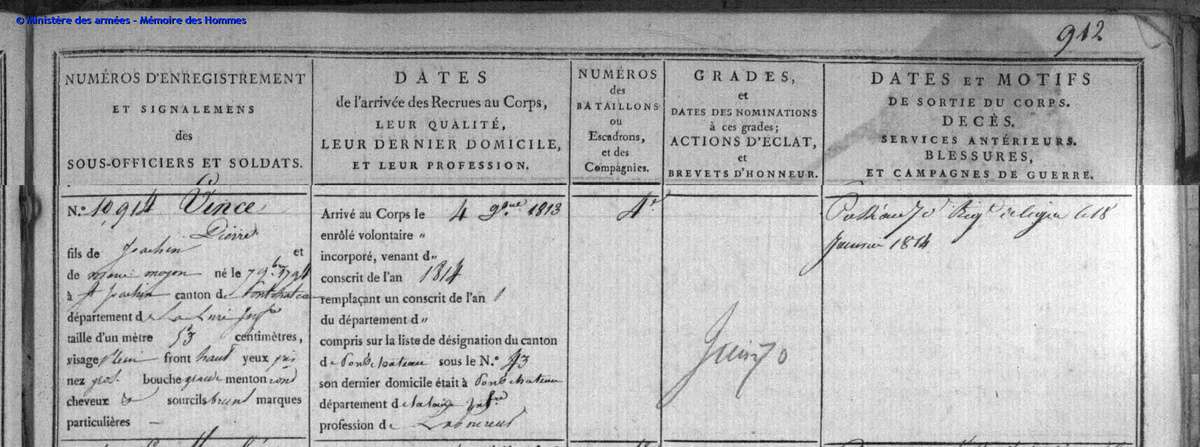 © Ministère des armées - Mémoire des Hommes
912
NUMÉROS D'ENREGISTREMENT
ET SIGNALEMENS
des
SOUS-OFFICIERS ET SOLDATS.
DATES
de l'arrivée des Recrues au Corps,
LEUR QUALITÉ,
LEUR DERNIER DOMICILE,
ET LEUR PROFESSION.
NUMÉROS
des
BATAILLONS
ou
Escadrons,
et des
Compagnies.
GRADES,
et
DATES DES NOMINATIONS
à ces grades;
ACTIONS D'ECLAT,
et
BREVETS D'HONNEUR.
DATES ET MOTIFS
DE SORTIE DU CORPS.
DECÈS.
SERVICES ANTÉRIEURS.
BLESSURES,
ET CAMPAGNES DE GUERRE.
N.º 10914 Vince
Pierre
fils de Joachin et
de marie moyon né le 7 9.bre 1794
à St Joachin canton de Pontchateau
département de La Loire Infre
taille d'un mètre 53 centimètres,
visage plein front haut yeux gris
nez gros bouche grande menton rond
cheveux & sourcils bruns marques
particulières —
Arrivé au Corps le 4 1813
enrôlé volontaire "
incorporé, venant d"
conscrit de l'an 1814
remplaçant un conscrit de l'an
du département d"
compris sur la liste de désignation du canton
de Pontchateau sous le N.º 43
son dernier domicile était à Pontchateau
département de la Loire Infre
profession de Laboureur
4e
70
Passé au 70e Regt de ligne le 18
Janvier 1814